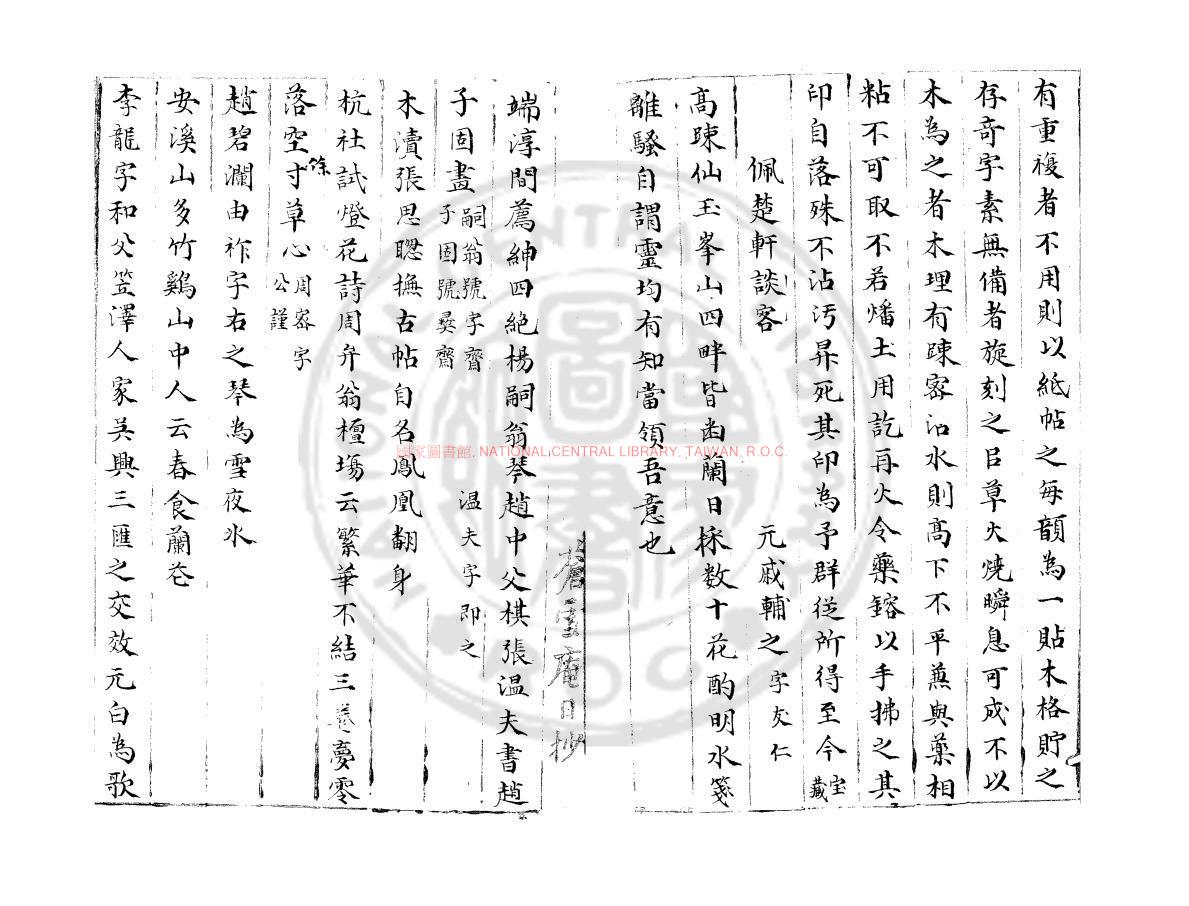 有重複者不用則以紙帖之每韻為一貼木格貯之
存奇字素無備者旋刻之以草火燒瞬息可成不以
木為之者木理有疎密沾水則高下不平兼與藥相
粘不可取不若燔土用訖再火令藥鎔以手拂之其
印自落殊不沾汚昇死其印為予群從所得至今宝藏
佩楚軒談客 元戚輔之字友仁
高疎仙玉峯山四畔皆幽蘭日採数十花酌明水箋
離騷自謂靈均有知當領吾意也
舊雲庵日抄
端淳間薦紳四絕楊嗣翁琴趙中父棋張溫夫書趙
子固畫嗣翁號字齋子固號彝齋 温夫字即之
木瀆張思聰撫古帖自名鳳凰翻身
杭社試燈花詩周弁翁檀塲云繁華不結三春夢零
落空餘寸草心周密字公謹
趙碧瀾由祚字右之琴為雪夜氷
安溪山多竹鷄山中人云春食蘭花
李龍字和父笠澤人家吳興三匯之交效元白為歌
國家圖書館, NATIONAL CENTRAL LIBRARY, TAIWAN, R.O.C.